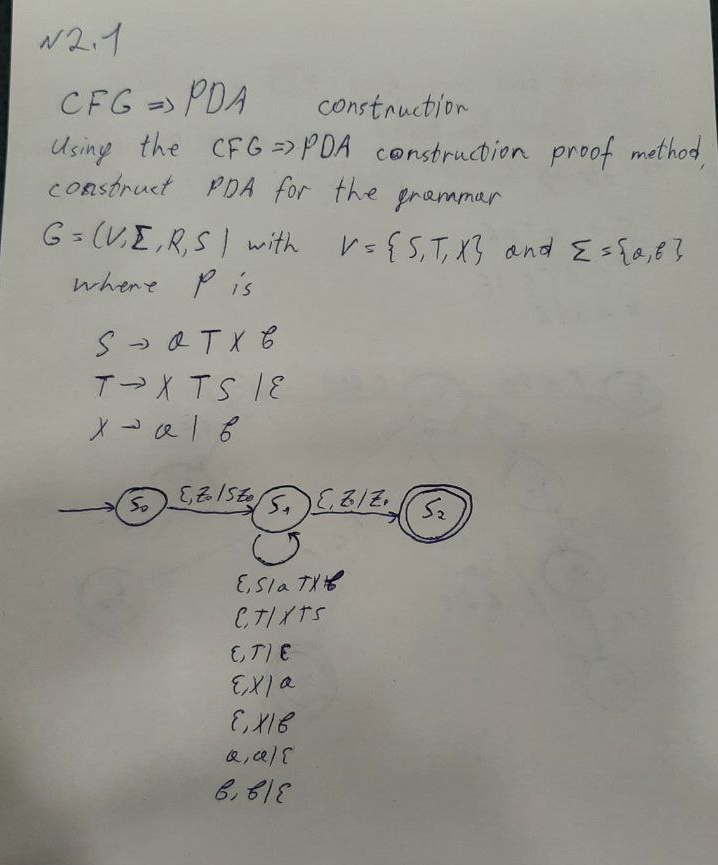 N2.1
CFG => PDA construction
Using the CFG => PDA construction proof method,
construct PDA for the grammar
G = (V, Σ, R, S) with V = {S, T, X} and Σ = {a, b}
where P is
S → a T X b
T → X T S | ε
X → a | b
S₀ ε, Z₀ / SZ₀ S₁ ε, Z₀ / Z₀ S₂
ε, S / a TXb
ε, T / XTS
ε, T / ε
ε, X / a
ε, X / b
a, a / ε
b, b / ε